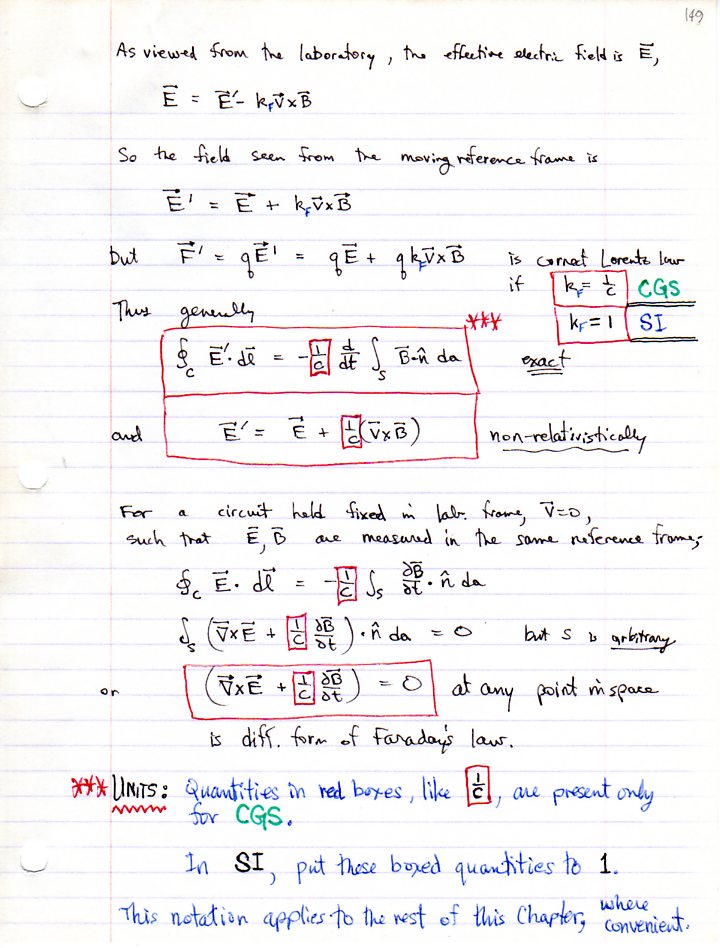 149
As viewed from the laboratory, the effective electric field is E⃗,
E⃗ = E⃗′ - k_F v⃗ × B⃗
So the field seen from the moving reference frame is
E⃗′ = E⃗ + k_F v⃗ × B⃗
but F⃗′ = qE⃗′ = qE⃗ + q k_F v⃗ × B⃗ is correct Lorentz law
if k_F = 1/c CGS
k_F = 1 SI
Thus generally ***
∮_C E⃗′ · dl⃗ = - 1/c d/dt ∫_S B⃗ · n̂ da exact
and E⃗′ = E⃗ + 1/c (v⃗ × B⃗) non-relativistically
For a circuit held fixed in lab. frame, v⃗=0,
such that E⃗, B⃗ are measured in the same reference frame,
∮_C E⃗ · dl⃗ = - 1/c ∫_S ∂B⃗/∂t · n̂ da
∫_S (∇⃗ × E⃗ + 1/c ∂B⃗/∂t) · n̂ da = 0 but S is arbitrary
or (∇⃗ × E⃗ + 1/c ∂B⃗/∂t) = 0 at any point in space
is diff. form of Faraday's law.
*** UNITS: Quantities in red boxes, like 1/c, are present only
for CGS.
In SI, put these boxed quantities to 1.
This notation applies to the rest of this Chapter, where
convenient.